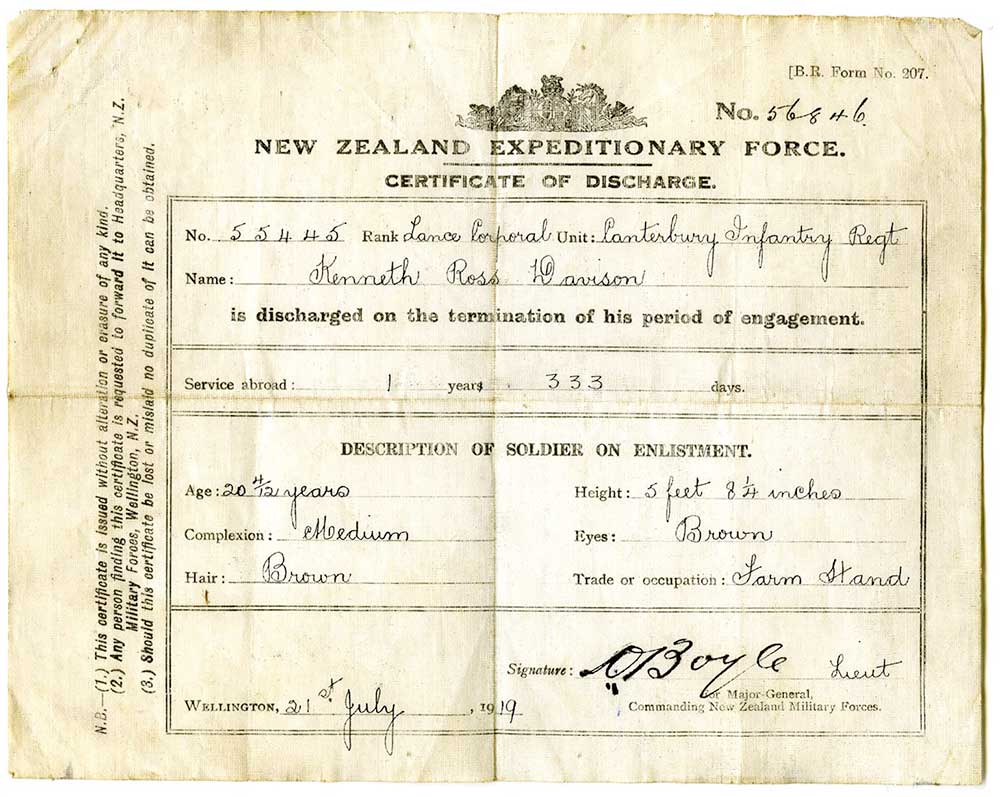 [B.R. Form No. 207.
No. 56846.
NEW ZEALAND EXPEDITIONARY FORCE.
CERTIFICATE OF DISCHARGE.
No. 55445 Rank Lance Corporal Unit: Canterbury Infantry Regt
Name: Kenneth Ross Davison
is discharged on the termination of his period of engagement.
Service abroad: 1 years 333 days.
DESCRIPTION OF SOLDIER ON ENLISTMENT.
Age: 20 4/12 years Height: 5 feet 8 1/4 inches
Complexion: Medium Eyes: Brown
Hair: Brown Trade or occupation: Farm Hand
Signature: Boyle Lieut
for Major-General,
WELLINGTON, 21st July, 1919 Commanding New Zealand Military Forces.
N.B.—(1.) This certificate is issued without alteration or erasure of any kind.
(2.) Any person finding this certificate is requested to forward it to Headquarters, N.Z.
Military Forces, Wellington, N.Z.
(3.) Should this certificate be lost or mislaid no duplicate of it can be obtained.